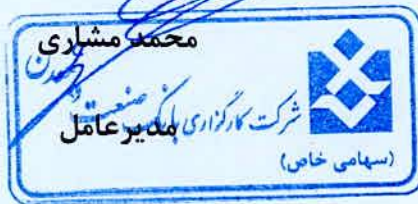 محمد مشاری
شرکت کارگزاری بانک صنعت و معدن
مدیرعامل
(سهامی خاص)